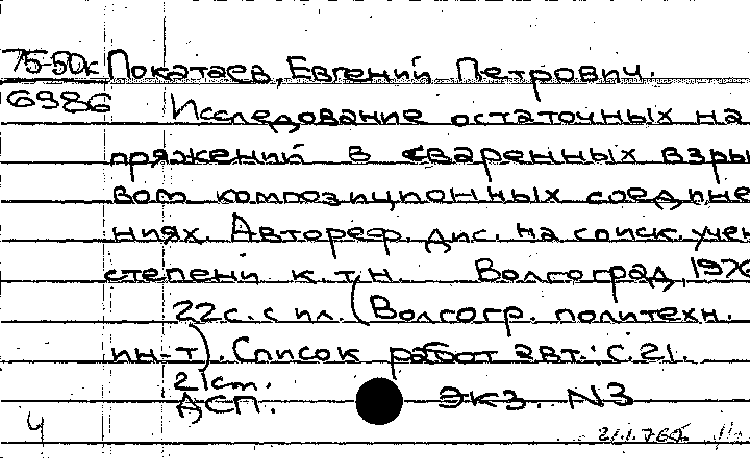 75-50к Покатаев, Евгений Петрович.
6986 Исследование остаточных на
пряжений в сваренных взры
вом композиционных соедине
ниях. Автореф. дис. на соиск. учен
степени к.т.н. Волгоград, 197
22с. с ил. (Волгогр. политехн.
ин-т). Список работ авт.: с. 21.
21 ст.
АСП. ЭКЗ. N3
4